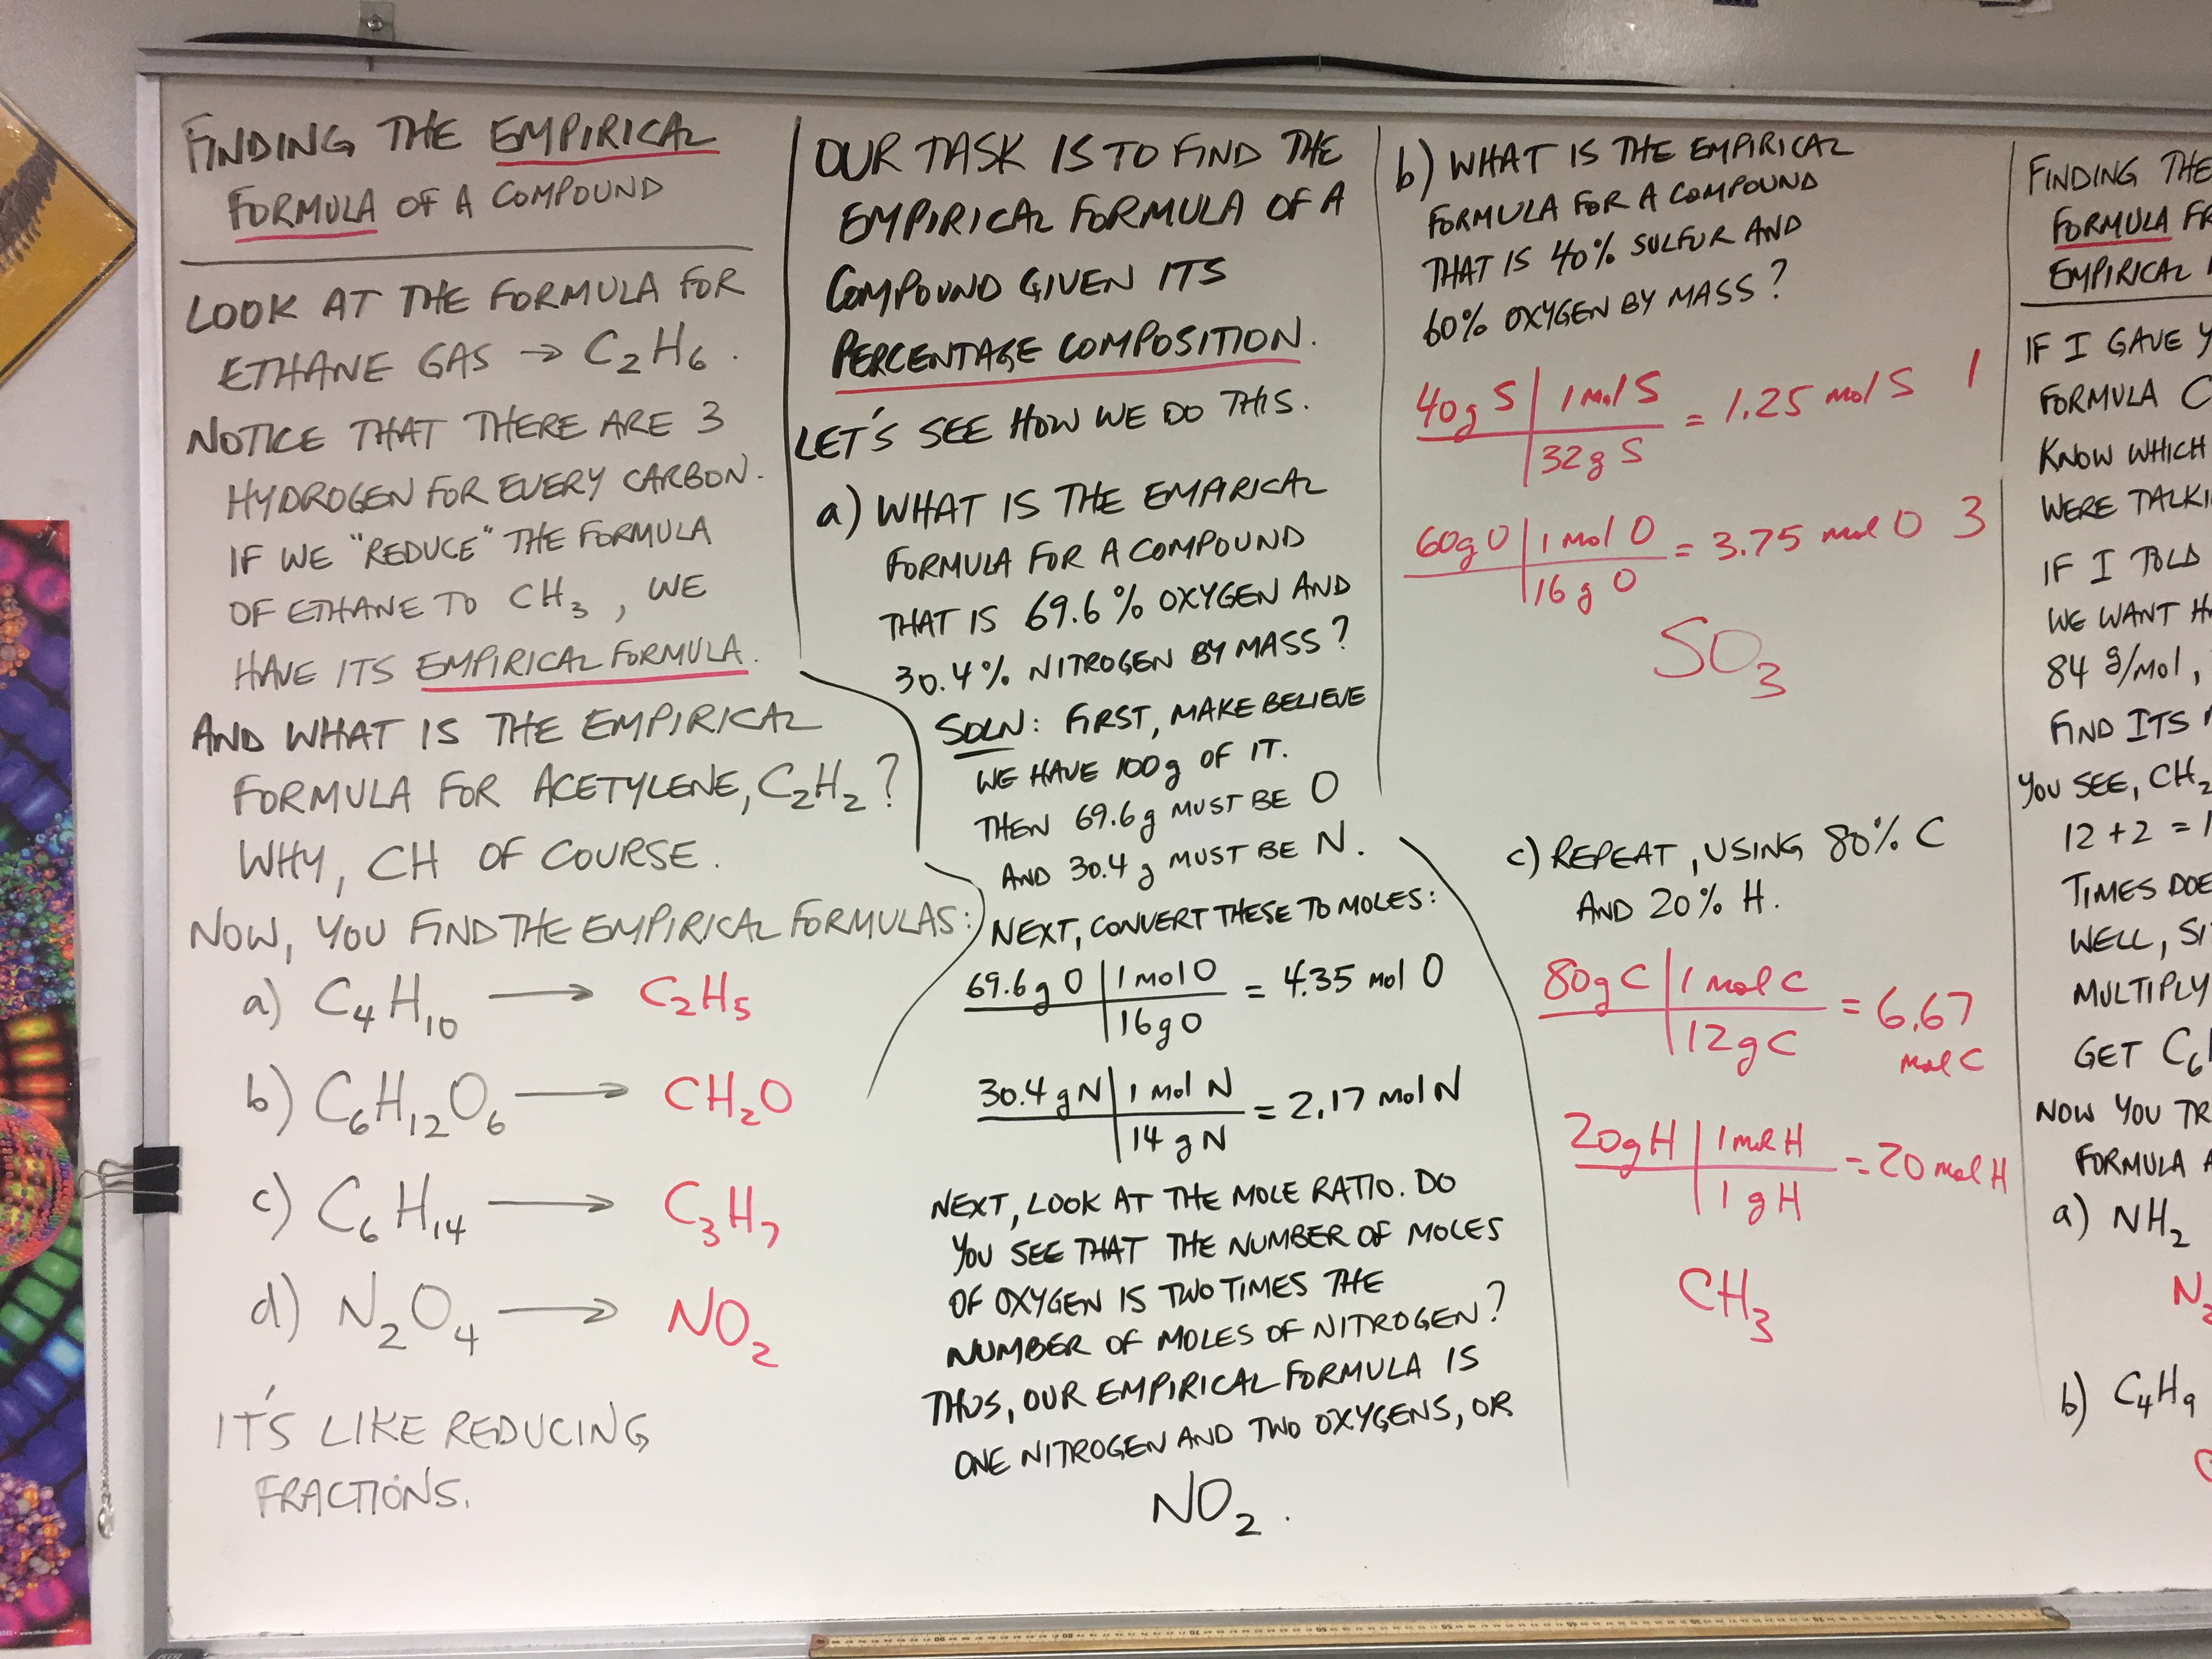 FINDING THE EMPIRICAL
FORMULA OF A COMPOUND
LOOK AT THE FORMULA FOR
ETHANE GAS → C₂H₆.
NOTICE THAT THERE ARE 3
HYDROGEN FOR EVERY CARBON.
IF WE "REDUCE" THE FORMULA
OF ETHANE TO CH₃, WE
HAVE ITS EMPIRICAL FORMULA.
AND WHAT IS THE EMPIRICAL
FORMULA FOR ACETYLENE, C₂H₂?
WHY, CH OF COURSE.
NOW, YOU FIND THE EMPIRICAL FORMULAS:
a) C₄H₁₀ → C₂H₅
b) C₆H₁₂O₆ → CH₂O
c) C₆H₁₄ → C₃H₇
d) N₂O₄ → NO₂
IT'S LIKE REDUCING
FRACTIONS.
OUR TASK IS TO FIND THE
EMPIRICAL FORMULA OF A
COMPOUND GIVEN ITS
PERCENTAGE COMPOSITION.
LET'S SEE HOW WE DO THIS.
a) WHAT IS THE EMPIRICAL
FORMULA FOR A COMPOUND
THAT IS 69.6% OXYGEN AND
30.4% NITROGEN BY MASS?
SOLN: FIRST, MAKE BELIEVE
WE HAVE 100g OF IT.
THEN 69.6g MUST BE O
AND 30.4 g MUST BE N.
NEXT, CONVERT THESE TO MOLES:
69.6g O | 1 mol O = 4.35 mol O
16g O
30.4 gN | 1 mol N = 2.17 mol N
14 g N
NEXT, LOOK AT THE MOLE RATIO. DO
YOU SEE THAT THE NUMBER OF MOLES
OF OXYGEN IS TWO TIMES THE
NUMBER OF MOLES OF NITROGEN?
THUS, OUR EMPIRICAL FORMULA IS
ONE NITROGEN AND TWO OXYGENS, OR
NO₂.
b) WHAT IS THE EMPIRICAL
FORMULA FOR A COMPOUND
THAT IS 40% SULFUR AND
60% OXYGEN BY MASS?
40g S | 1 mol S = 1.25 mol S 1
32g S
60g O | 1 mol O = 3.75 mol O 3
16 g O
SO₃
c) REPEAT, USING 80% C
AND 20% H.
80g C | 1 mol C = 6.67
12g C mol C
20g H | 1 mol H = 20 mol H
1 g H
CH₃
FINDING THE
FORMULA FR
EMPIRICAL
IF I GAVE Y
FORMULA C
KNOW WHICH
WERE TALKI
IF I TOLD
WE WANT H
84 g/mol,
FIND ITS
YOU SEE, CH₂
12 + 2 = 1
TIMES DOE
WELL, SI
MULTIPLY
GET C₆
NOW YOU TR
FORMULA
a) NH₂
N₂
b) C₄H₉